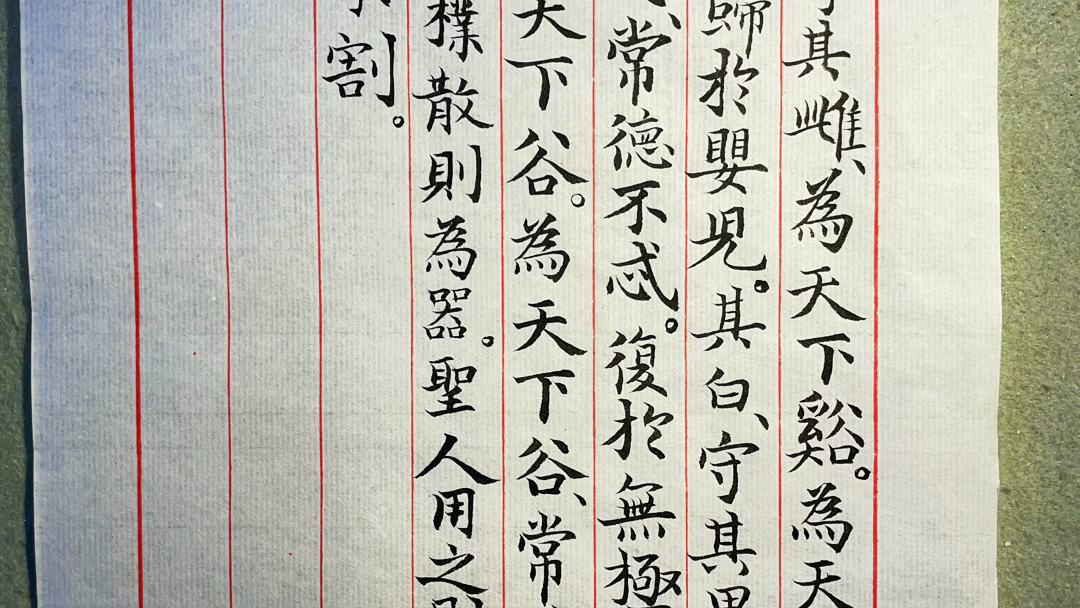 其雌、為天下谿。為天
歸於嬰児。其白、守其黑
常德不忒。復於無極
天下谷。為天下谷、常
樸散則為器。聖人用之則
割。